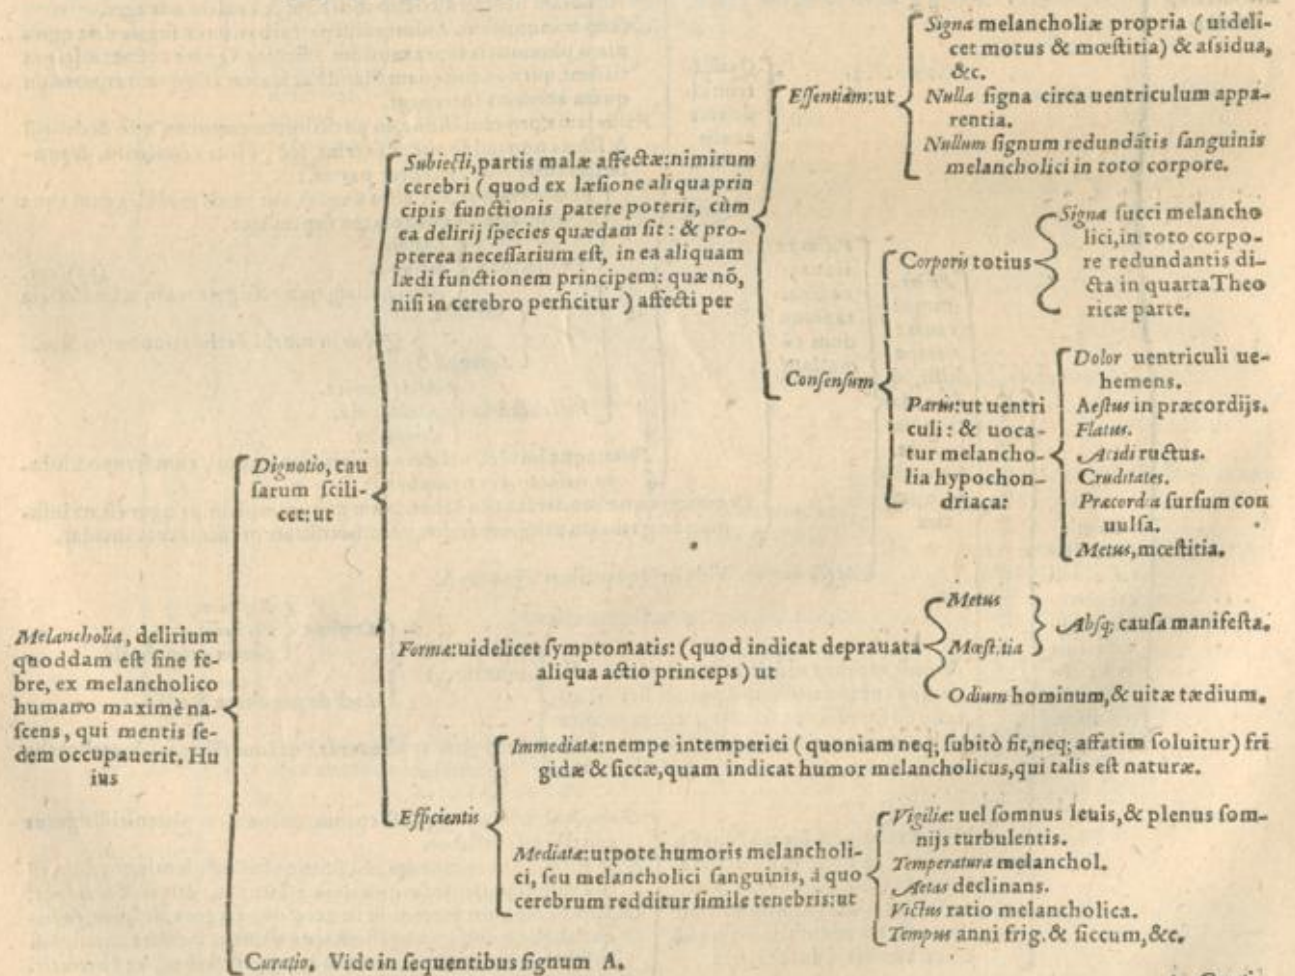 Melancholia, delirium
quoddam est sine fe-
bre, ex melancholico
humano maximè na-
scens, qui mentis se-
dem occupauerit. Hu
ius
Dignotio, cau
sarum scili-
cet: ut
Subiecti, partis malæ affectæ: nimirum
cerebri (quod ex læsione aliqua prin
cipis functionis patere poterit, cùm
ea delirij species quædam sit: & pro-
pterea necessarium est, in ea aliquam
lædi functionem principem: quæ nõ,
nisi in cerebro perficitur) affecti per
Essentiam: ut
Signa melancholiæ propria (uideli-
cet motus & mœstitia) & assidua,
&c.
Nulla signa circa uentriculum appa-
rentia.
Nullum signum redundãtis sanguinis
melancholici in toto corpore.
Consensum
Corporis totius
Signa succi melancho
lici, in toto corpo-
re redundantis di-
cta in quarta Theo
ricæ parte.
Partis: ut uentri
culi: & uoca-
tur melancho-
lia hypochon-
driaca:
Dolor uentriculi ue-
hemens.
Aestus in præcordijs.
Flatus.
Acidi ructus.
Cruditates.
Præcordia sursum con
uulsa.
Metus, mœstitia.
Formæ: uidelicet symptomatis: (quod indicat deprauata
aliqua actio princeps) ut
Metus
Mœstitia
Absq; causa manifesta.
Odium hominum, & uitæ tædium.
Efficientis
Immediatæ: nempe intemperiei (quoniam neq; subitò fit, neq; affatim soluitur) fri
gidæ & siccæ, quam indicat humor melancholicus, qui talis est naturæ.
Mediatæ: utpote humoris melancholi-
ci, seu melancholici sanguinis, à quo
cerebrum redditur simile tenebris: ut
Vigiliæ: uel somnus leuis, & plenus som-
nijs turbulentis.
Temperatura melanchol.
Aetas declinans.
Victus ratio melancholica.
Tempus anni frig. & siccum, &c.
Curatio. Vide in sequentibus signum A.